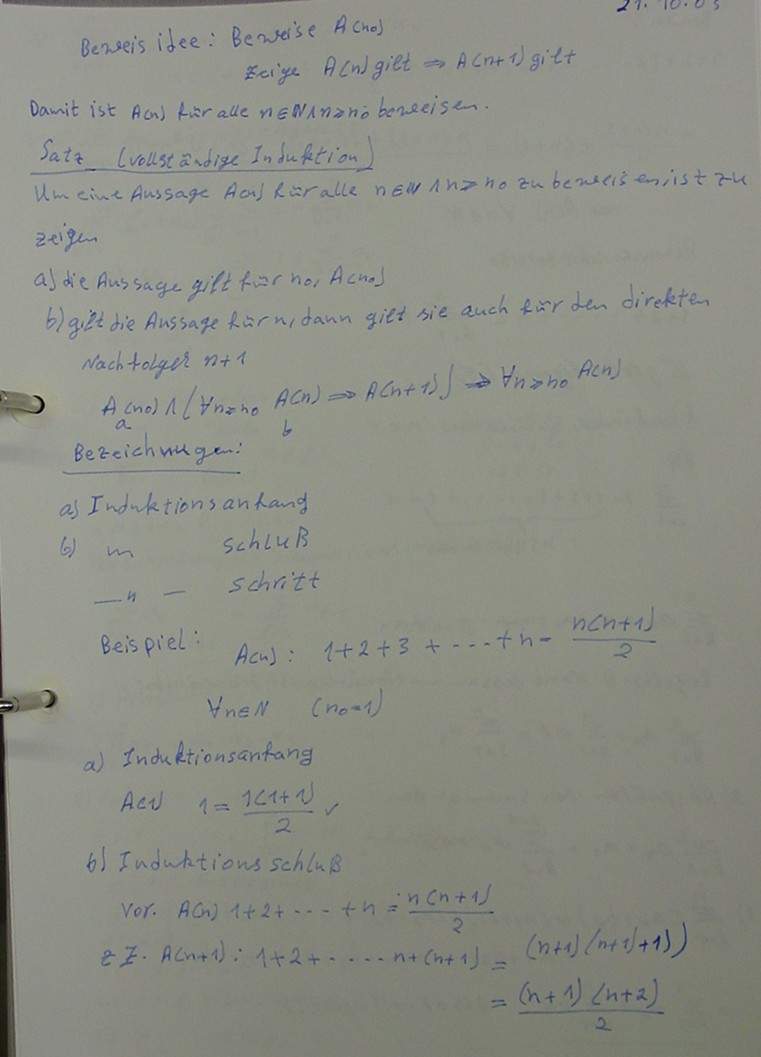 21.10.03
Beweis idee: Beweise A(n₀)
zeige A(n) gilt ⇒ A(n+1) gilt
Damit ist A(n) für alle n∈ℕ ∧ n≥n₀ beweisen.
Satz (vollständige Induktion)
Um eine Aussage A(n) für alle n∈ℕ ∧ n≥n₀ zu beweisen, ist zu
zeigen
a) die Aussage gilt für n₀, A(n₀)
b) gilt die Aussage für n, dann gilt sie auch für den direkten
Nachfolger n+1
A(n₀) ∧ (∀n≥n₀ A(n) ⇒ A(n+1)) ⇒ ∀n≥n₀ A(n)
a b
Bezeichnungen:
a) Induktionsanfang
b) schluß
— " — schritt
Beispiel: A(n): 1+2+3+----+n = n(n+1)/2
∀n∈ℕ (n₀=1)
a) Induktionsanfang
A(1) 1 = 1(1+1)/2 ✓
b) Induktionsschluß
Vor. A(n) 1+2+---+n = n(n+1)/2
z Z. A(n+1): 1+2+-----n+(n+1) = (n+1)(n+1)+1))
= (n+1)(n+2)/2